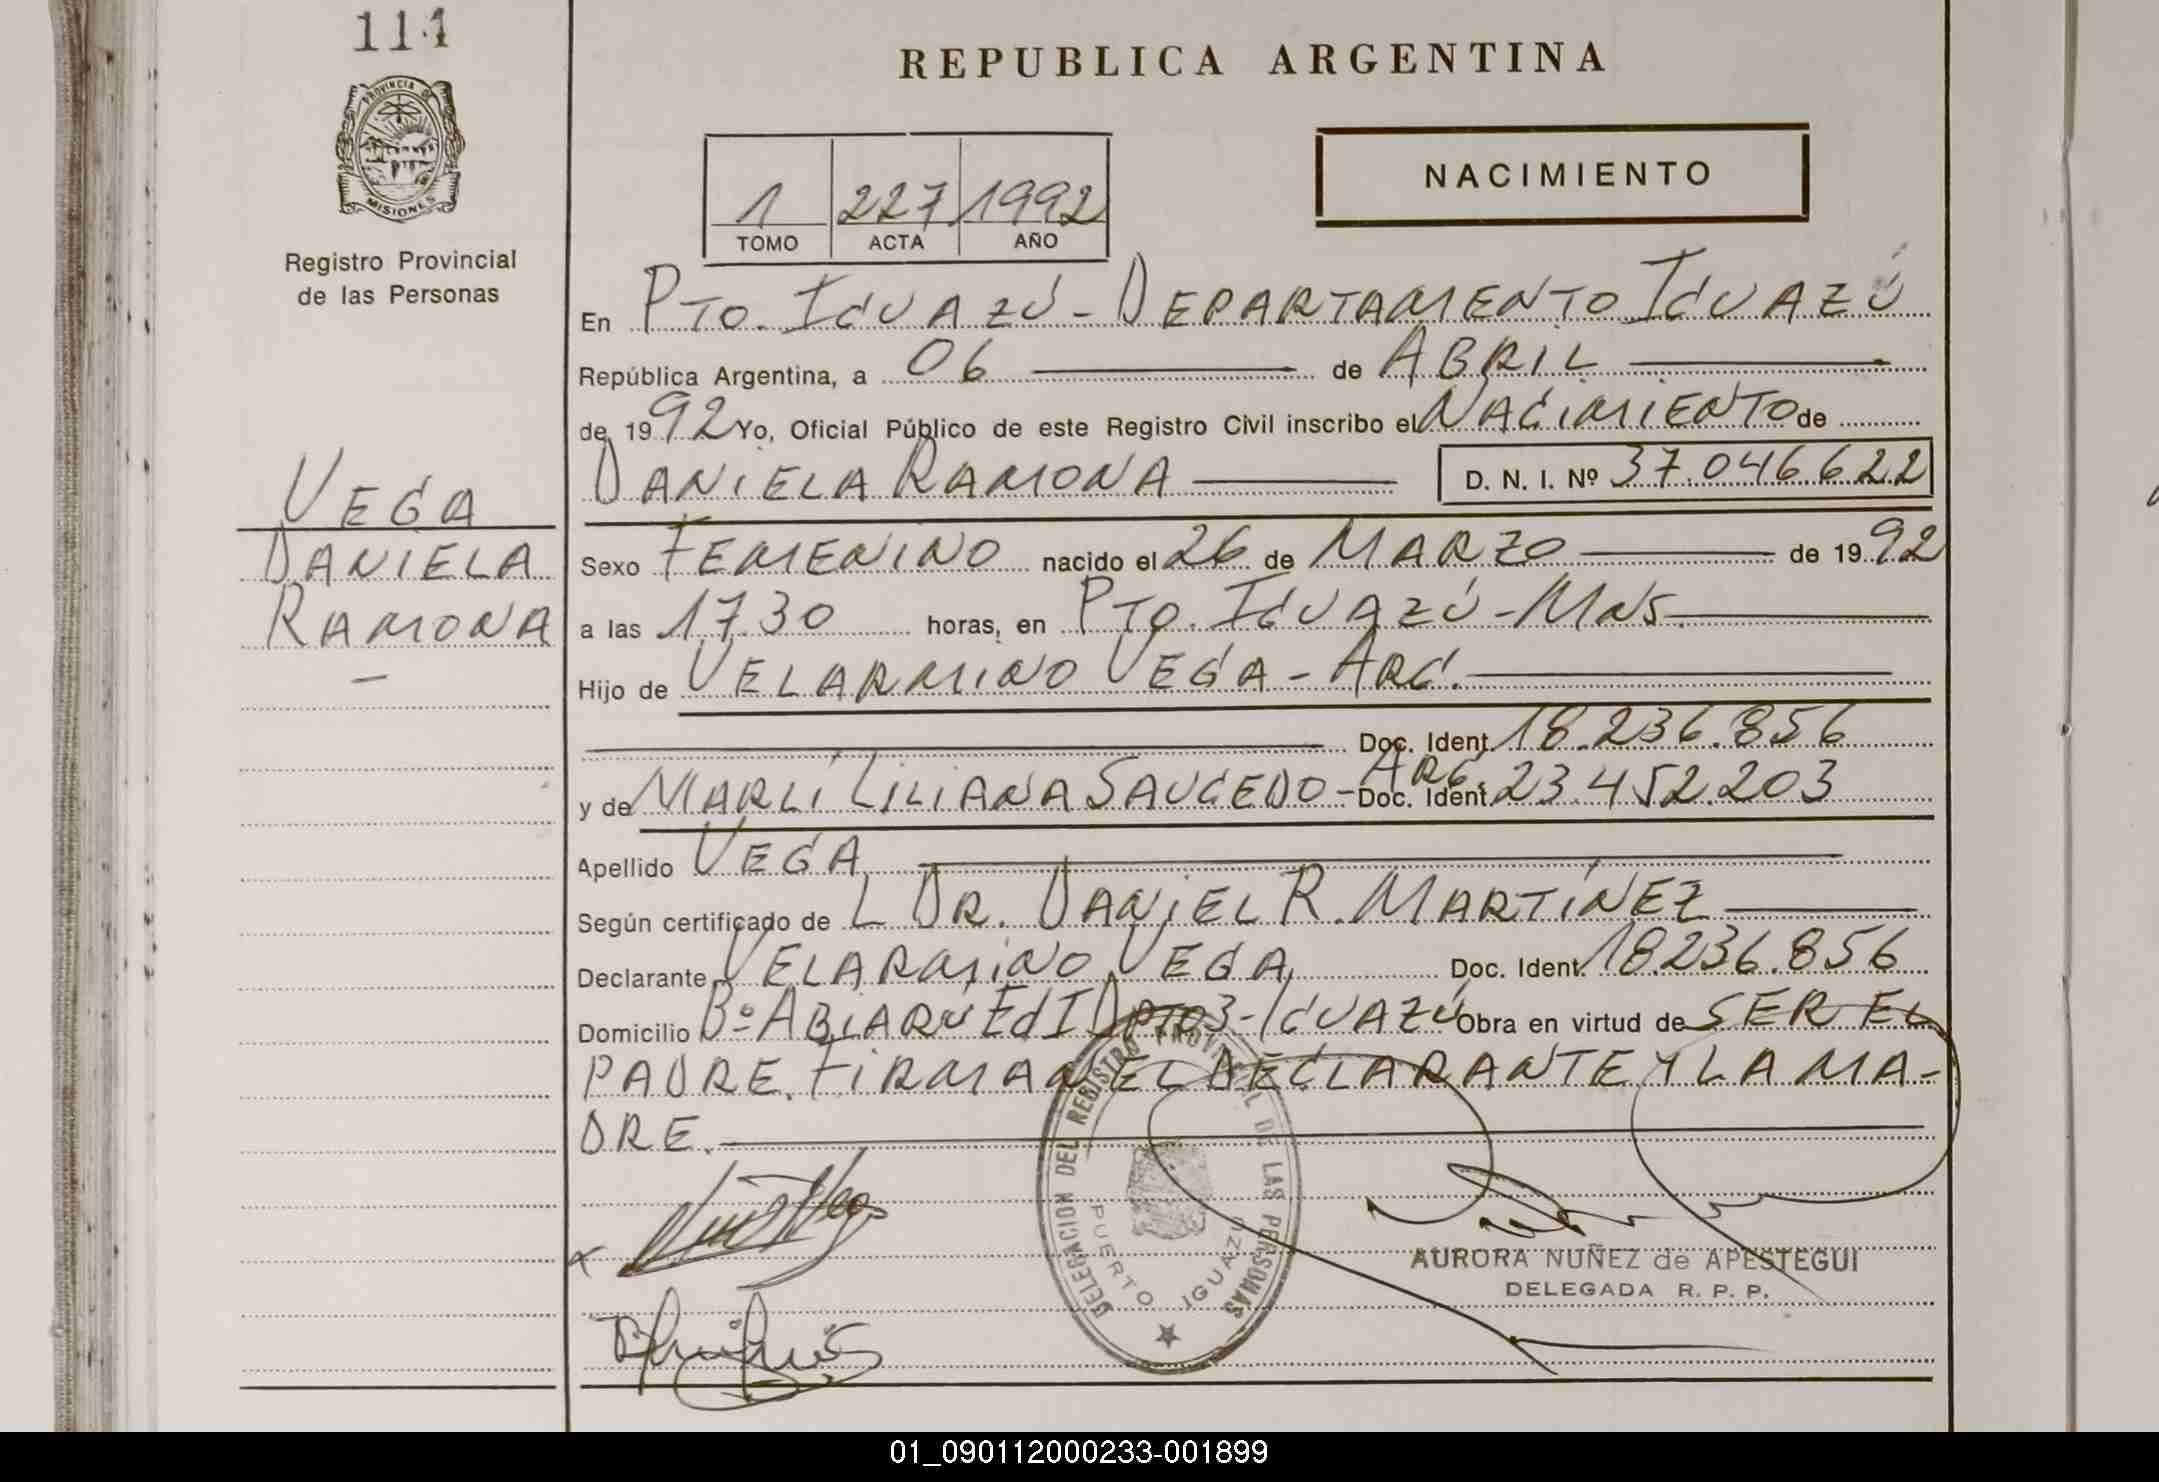 114
REPUBLICA ARGENTINA
PROVINCIA DE
MISIONES
Registro Provincial
de las Personas
1 227 1992
TOMO ACTA AÑO
NACIMIENTO
En PTO. IGUAZÚ - DEPARTAMENTO IGUAZÚ
República Argentina, a 06 de ABRIL
de 1992 Yo, Oficial Público de este Registro Civil inscribo el NACIMIENTO de
DANIELA RAMONA D. N. I. Nº 37.046.622
VEGA
DANIELA
RAMONA
Sexo FEMENINO nacido el 26 de MARZO de 1992
a las 17.30 horas, en PTO. IGUAZÚ - MNS.
Hijo de VELARMINO VEGA - ARG.
Doc. Ident. 18.236.856
y de MARLÍ LILIANA SAUCEDO - ARG. Doc. Ident. 23.452.203
Apellido VEGA
Según certificado de L DR. DANIEL R. MARTÍNEZ
Declarante VELARMINO VEGA Doc. Ident. 18.236.856
Domicilio Bº ABIARÚ Ed I DPTO 3 - IGUAZÚ Obra en virtud de SER EL
PADRE. FIRMAN EL DECLARANTE Y LA MA-
DRE.
DELEGACION DEL REGISTRO PROVINCIAL DE LAS PERSONAS
PUERTO IGUAZU
AURORA NUÑEZ de APESTEGUI
DELEGADA R. P. P.
01_090112000233-001899